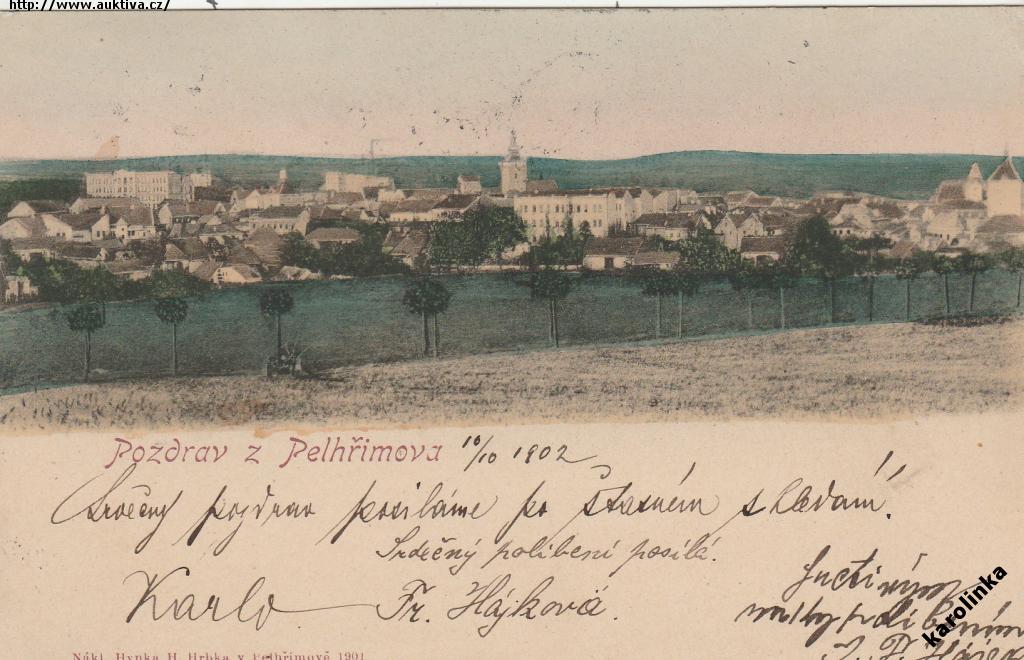 http://www.auktiva.cz/
Pozdrav z Pelhřimova 10/10 1902
Srdečný pozdrav posíláme po šťastném shledání.
Srdečný políbení posílá.
Karlo Fr. Hájková.
S uctivým
políbením
karolinka
Nákl. Hynka H. Hrbka v Pelhřimově 1901